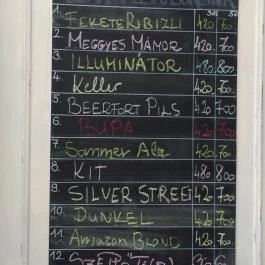 1. FEKETERIBIZLI 420.- 700
2. MEGGYES MÁMOR 420.- 700
3. ILLUMINÁTOR 480.- 800
4. Keller 420.- 700
5. BEERFORT PILS 420 700
6. BUPA 420 700
7. Sommer Ale 420.- 700
8. KIT 480 800
9. SILVER STREET 420 700
10. DUNKEL 420 700
11. Amazon BLOND 420.- 700
12.